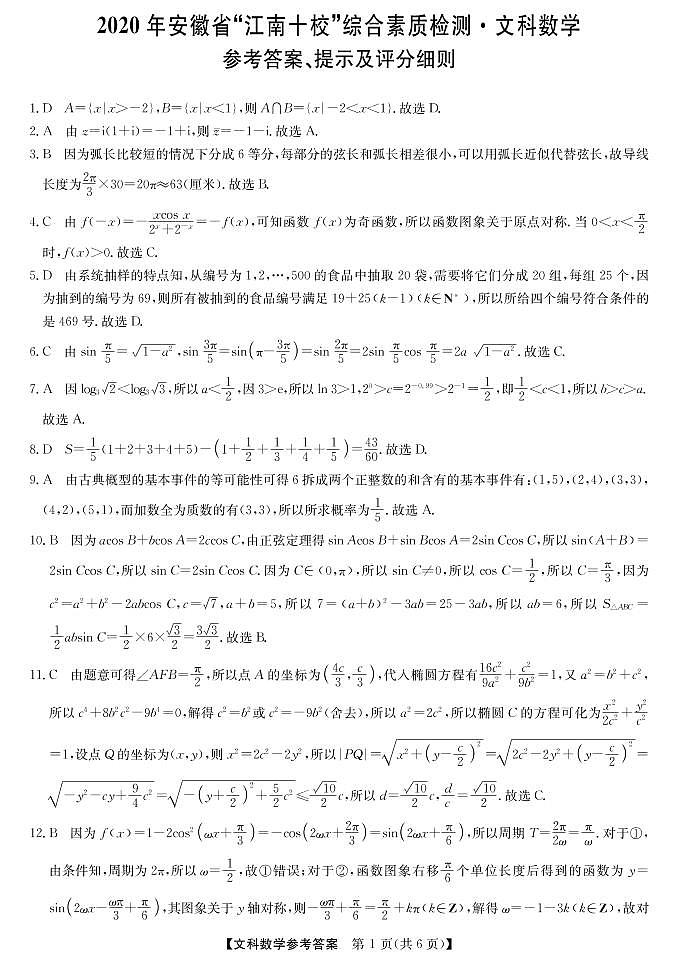 2020 年安徽省“江南十校”综合素质检测·文科数学
参考答案、提示及评分细则
1. D A={x|x>-2},B={x|x<1},则 A⋂B={x|-2<x<1}. 故选 D.
2. A 由 z=i(1+i)=-1+i,则 z̅=-1-i. 故选 A.
3. B 因为弧长比较短的情况下分成 6 等分,每部分的弦长和弧长相差很小,可以用弧长近似代替弦长,故导线
长度为 2π/3 ×30=20π≈63(厘米). 故选 B.
4. C 由 f(-x)=- xcos x/(2ˣ+2⁻ˣ) =-f(x),可知函数 f(x)为奇函数,所以函数图象关于原点对称. 当 0<x< π/2
时,f(x)>0. 故选 C.
5. D 由系统抽样的特点知,从编号为 1,2,…,500 的食品中抽取 20 袋,需要将它们分成 20 组,每组 25 个,因
为抽到的编号为 69,则所有被抽到的食品编号满足 19+25(k-1)(k∈N*),所以所给四个编号符合条件的
是 469 号. 故选 D.
6. C 由 sin π/5 = √(1-a²) ,sin 3π/5 =sin(π- 3π/5)=sin 2π/5 =2sin π/5 cos π/5 =2a √(1-a²). 故选 C.
7. A 因 log₃√2<log₃√3,所以 a< 1/2 ,因 3>e,所以 ln 3>1,2⁰>c=2^(-0.99)>2⁻¹= 1/2 ,即 1/2 <c<1,所以 b>c>a.
故选 A.
8. D S= 1/5 (1+2+3+4+5)-(1+ 1/2 + 1/3 + 1/4 + 1/5)= 43/60. 故选 D.
9. A 由古典概型的基本事件的等可能性可得 6 拆成两个正整数的和含有的基本事件有:(1,5),(2,4),(3,3),
(4,2),(5,1),而加数全为质数的有(3,3),所以所求概率为 1/5. 故选 A.
10. B 因为 acos B+bcos A=2ccos C,由正弦定理得 sin Acos B+sin Bcos A=2sin Ccos C,所以 sin(A+B)=
2sin Ccos C,所以 sin C=2sin Ccos C. 因为 C∈(0,π),所以 sin C≠0,所以 cos C= 1/2 ,所以 C= π/3 ,因为
c²=a²+b²-2abcos C,c=√7,a+b=5,所以 7=(a+b)²-3ab=25-3ab,所以 ab=6,所以 S△ABC=
1/2 absin C= 1/2 ×6× √3/2 = 3√3/2. 故选 B.
11. C 由题意可得∠AFB= π/2 ,所以点 A 的坐标为(4c/3, c/3),代入椭圆方程有 16c²/9a² + c²/9b² =1,又 a²=b²+c²,
所以 c⁴+8b²c²-9b⁴=0,解得 c²=b² 或 c²=-9b²(舍去),所以 a²=2c²,所以椭圆 C 的方程可化为 x²/2c² + y²/c²
=1,设点 Q 的坐标为(x,y),则 x²=2c²-2y²,所以|PQ|=√(x²+(y- c/2)²)=√(2c²-2y²+(y- c/2)²)=
√(-y²-cy+ 9/4 c²)=√(-(y+ c/2)²+ 5/2 c²)≤ √10/2 c,所以 d= √10/2 c, d/c = √10/2. 故选 C.
12. B 因为 f(x)=1-2cos²(ωx+ π/3)=-cos(2ωx+ 2π/3)=sin(2ωx+ π/6),所以周期 T= 2π/2ω = π/ω. 对于①,
由条件知,周期为 2π,所以 ω= 1/2 ,故①错误;对于②,函数图象右移 π/6 个单位长度后得到的函数为 y=
sin(2ωx- ωπ/3 + π/6),其图象关于 y 轴对称,则- ωπ/3 + π/6 = π/2 +kπ(k∈Z),解得 ω=-1-3k(k∈Z),故对
【文科数学参考答案 第 1 页(共 6 页)】